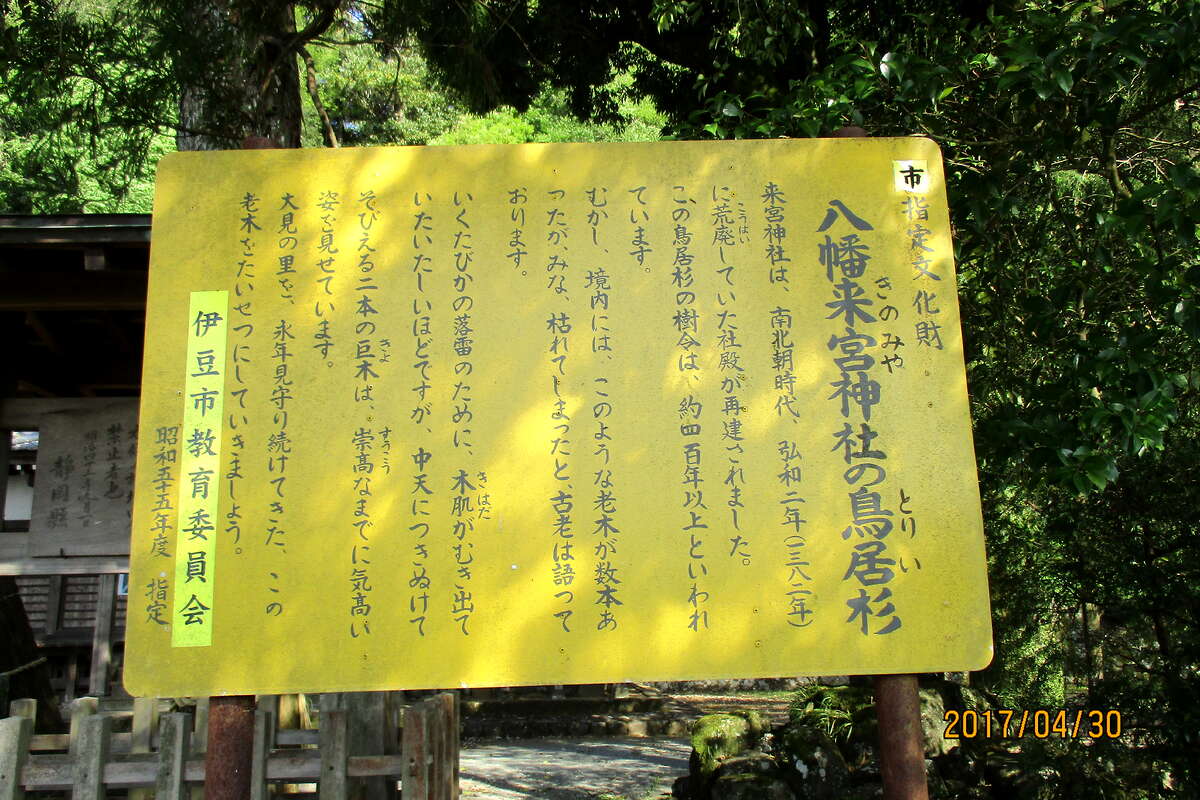 市指定文化財
八幡来宮神社の鳥居杉
きのみや
とりい
来宮神社は、南北朝時代、弘和二年(三八二年)
に荒廃していた社殿が再建されました。
こうはい
この鳥居杉の樹令は、約四百年以上といわれ
ています。
むかし、境内には、このような老木が数本あ
ったが、みな、枯れてしまったと、古老は語って
おります。
いくたびかの落雷のために、木肌がむき出て
きはだ
いたいたしいほどですが、中天につきぬけて
そびえる二本の巨木は、崇高なまでに気高い
きよ
すうこう
姿を見せています。
大見の里を、永年見守り続けてきた、この
老木をたいせつにしていきましょう。
伊豆市教育委員会
昭和五十五年度 指定
禁止者也
静岡縣
2017/04/30